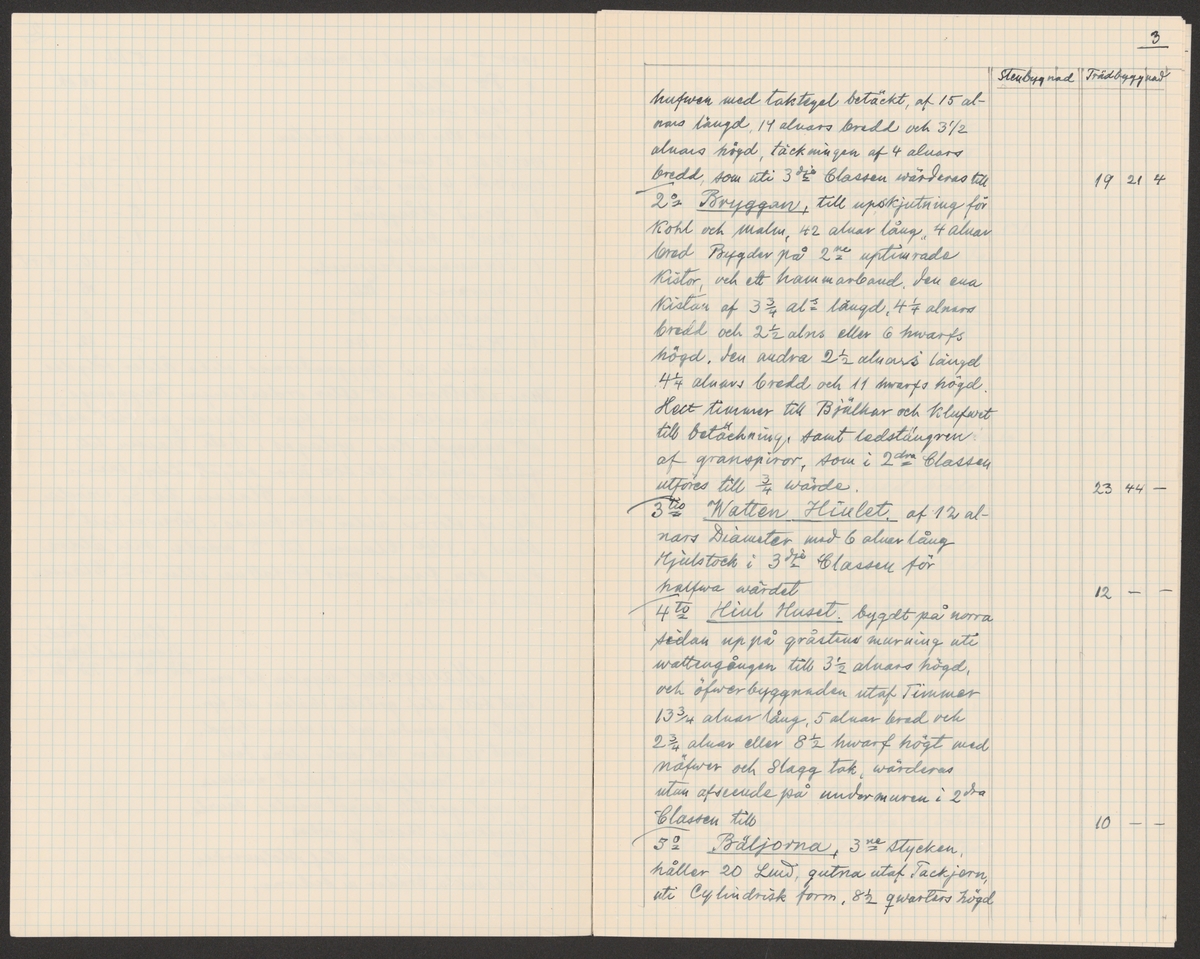 3
Stenbygnad Trädbyggnad
hufwen med taktegel betäckt, af 15 al-
nars längd, 14 alnars bredd och 3 1/2
alnars högd, täckningen af 4 alnars
bredd, som uti 3dje Classen wärderas till 19 21 4
2o Bryggan, till upskjutning för
Kohl och Malm, 42 alnar lång, 4 alnar
bred Bygder på 2ne uptimrade
Kistor, och ett hammarband, den ena
Kistan af 3 3/4 als längd, 4 1/4 alnars
bredd och 2 1/2 alns eller 6 hwarfs
högd, den andra 2 1/2 alnars längd
4 1/4 alnars bredd och 11 hwarfs högd.
Helt timmer till Bjälkar och Klufwet
till betäckning, samt ledstängren
af granspiror, som i 2dra Classen
utföres till 3/4 wärde. 23 44 —
3tio Watten Hiulet, af 12 al-
nars Diameter med 6 alnar lång
Hjulstock i 3dje Classen för
halfwa wärdet 12 — —
4to Hiul Huset, bygdt på norra
sidan uppå gråstens murning uti
wattengången till 3 1/2 alnars högd,
och öfwerbyggnaden utaf Timmer
13 3/4 alnar lång, 5 alnar bred och
2 3/4 alnar eller 8 1/2 hwarf högt med
näfwer och Slagg tak, wärderas
utan afseende på undermuren i 2dra
Classen till 10 — —
5o Bäljorna, 3ne Stycken,
håller 20 , gutna utaf Tackjern,
uti Cylindrisk form, 8 1/2 qwarters högd